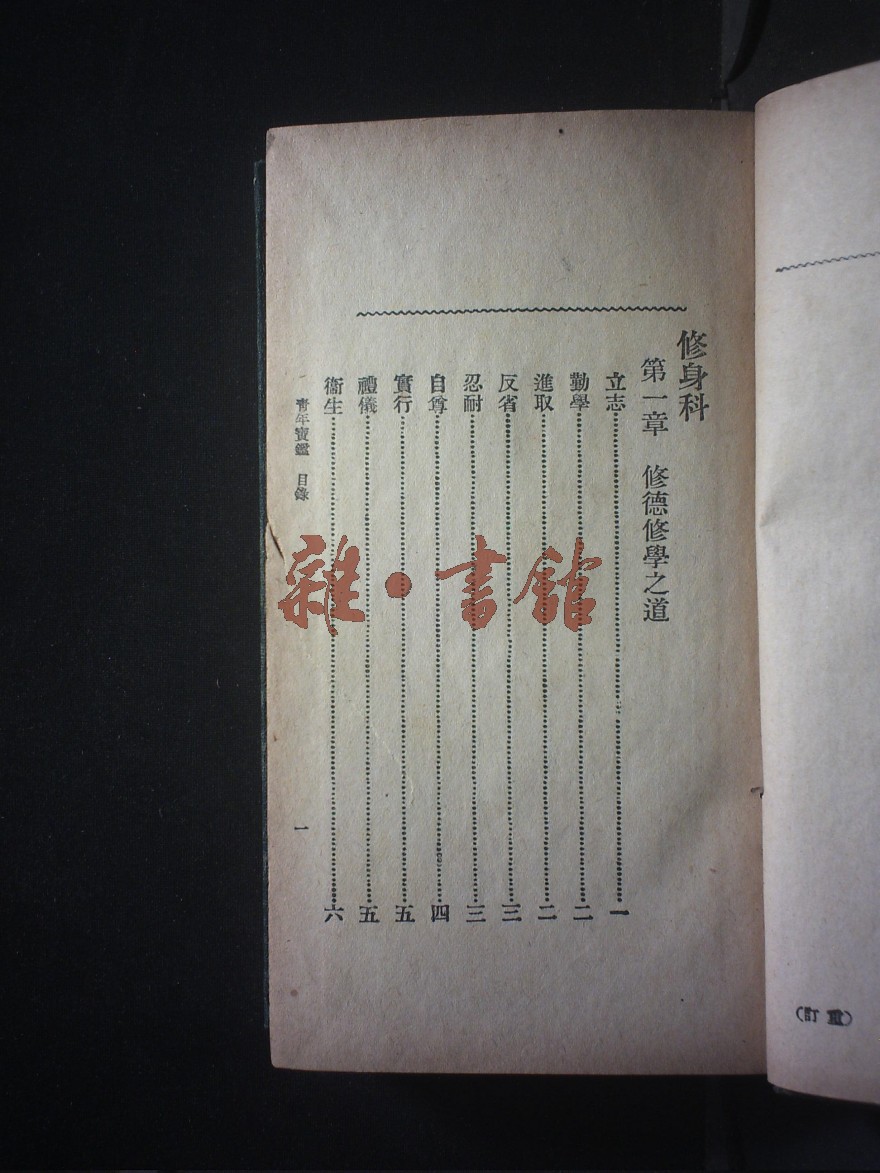 修身科
第一章 修德修學之道
立志 一
勤學 二
進取 二
反省 三
忍耐 三
自尊 四
實行 五
禮儀 五
衞生 六
青年寶鑑 目錄
一
雜·書館
(訂重)